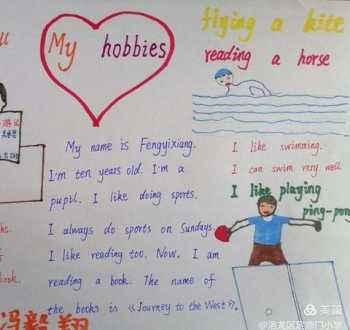 My hobbies
flying a kite
reading a horse
My name is Fengyixiang.
I'm ten years old. I'm a
pupil. I like doing sports.
I always do sports on Sundays
I like reading too. Now, I am
reading a book. The name of
the books is 《Journey to the West》.
I like swimming.
I can swim very well
I like playing
ping-pon
冯毅翔
美篇